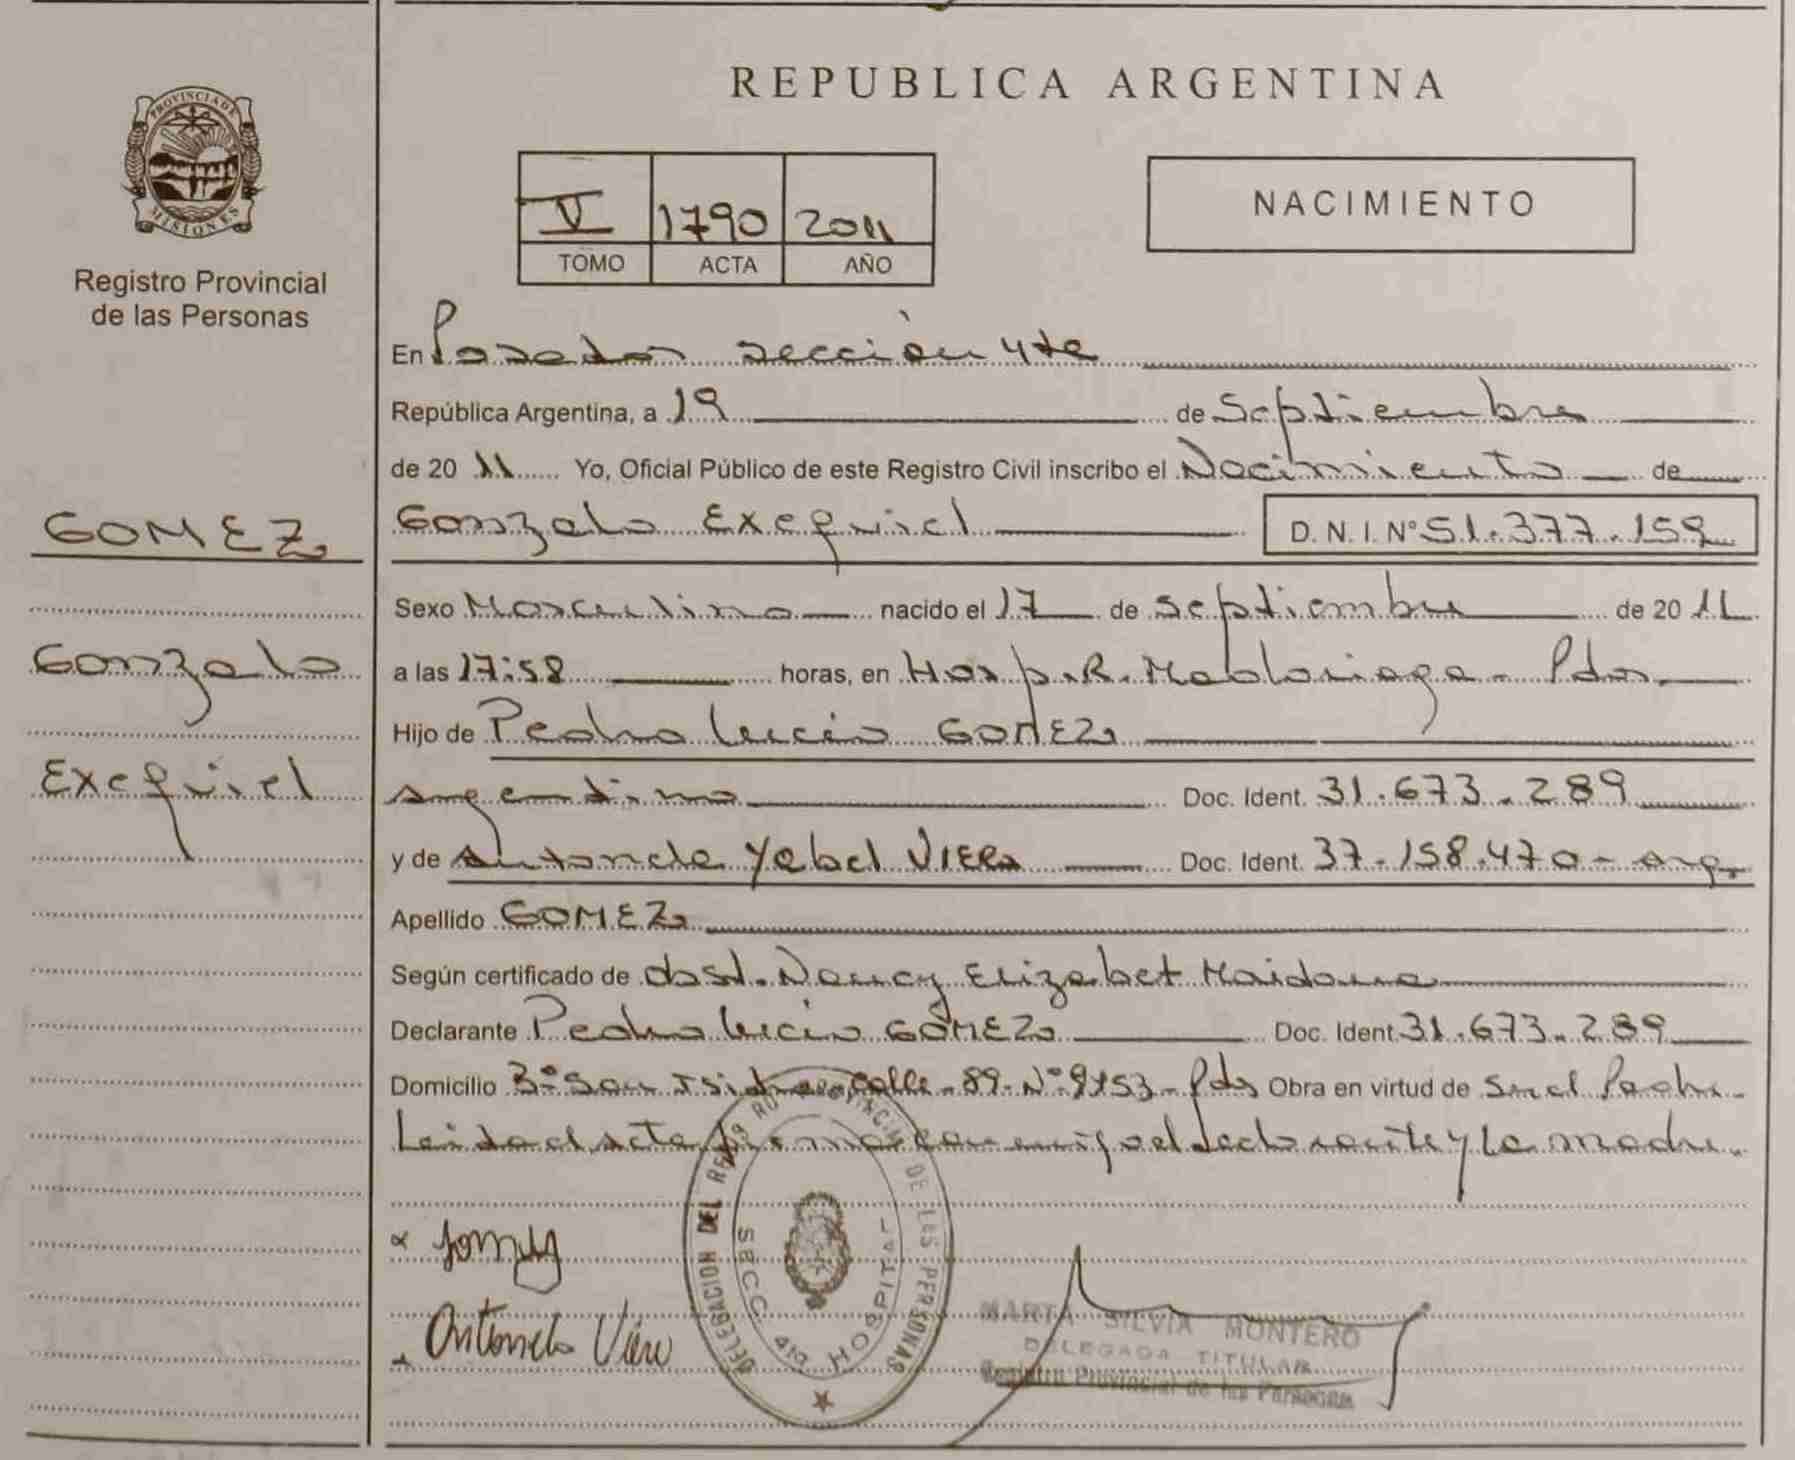 PROVINCIA DE
MISIONES
Registro Provincial
de las Personas
GOMEZ
Gonzalo
Exequiel
REPUBLICA ARGENTINA
V 1790 2011
TOMO ACTA AÑO
NACIMIENTO
En Posadas sección 4ta
República Argentina, a 19 de Septiembre
de 2011 Yo, Oficial Público de este Registro Civil inscribo el Nacimiento de
Gonzalo Exequiel D. N. I. Nº 51.377.159
Sexo Masculino nacido el 17 de Septiembre de 2011
a las 17:58 horas, en Hosp. R. Madariaga - Pdas.
Hijo de Pedro Lucio GOMEZ
Argentino Doc. Ident. 31.673.289
y de Antonela Yabel VIERA Doc. Ident. 37.158.470 - Arg.
Apellido GOMEZ
Según certificado de obst. Nancy Elizabet Maidana
Declarante Pedro Lucio GOMEZ Doc. Ident. 31.673.289
Domicilio Bº San Isidro calle 89 Nº 9153 - Pdas Obra en virtud de Ser el Padre
Leida el acta firman conmigo el declarante y la madre
Antonela Viera
DELEGACION DEL REGISTRO PROVINCIAL DE LAS PERSONAS
SECC. 4ta HOSPITAL
MARTA SILVIA MONTERO
DELEGADA TITULAR
Registro Provincial de las Personas